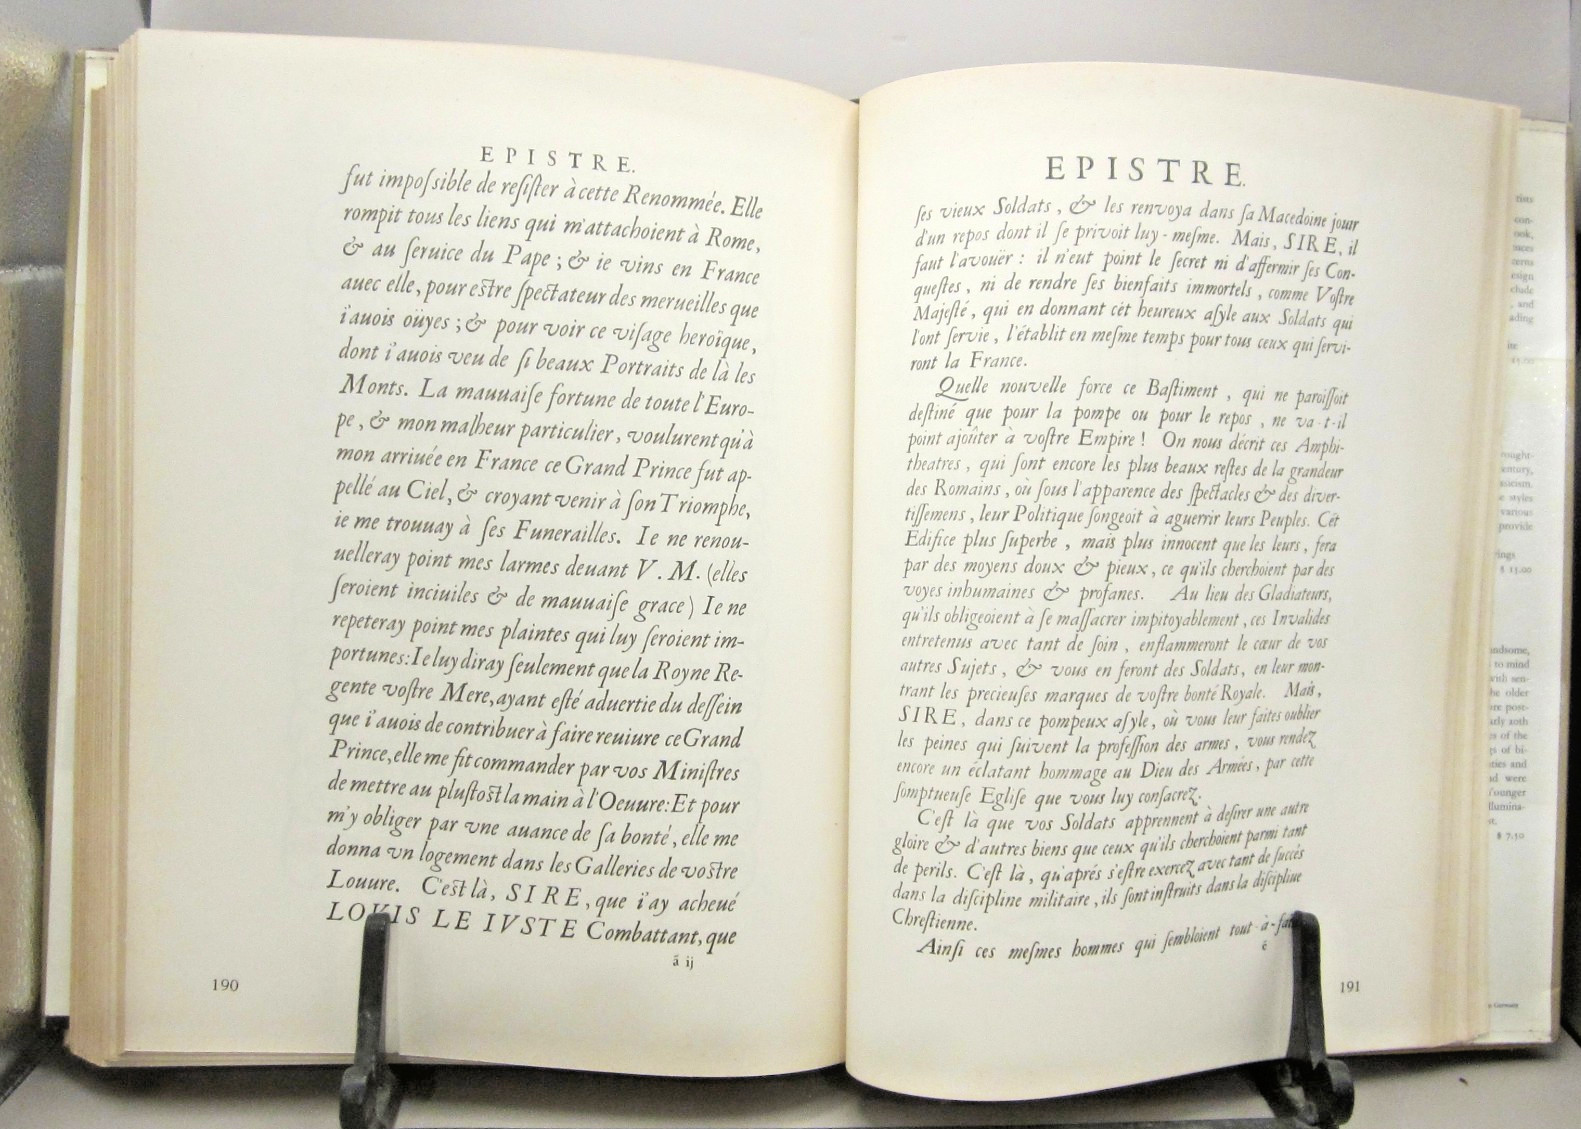 EPISTRE.
fut impoſsible de reſiſter à cette Renommée. Elle
rompit tous les liens qui m'attachoient à Rome,
& au ſeruice du Pape ; & ie vins en France
auec elle, pour eſtre ſpectateur des merueilles que
i'auois oüyes ; & pour voir ce viſage heroïque,
dont i'auois veu de ſi beaux Portraits de là les
Monts. La mauuaiſe fortune de toute l'Euro-
pe, & mon malheur particulier, voulurent qu'à
mon arriuée en France ce Grand Prince fut ap-
pellé au Ciel, & croyant venir à ſon Triomphe,
ie me trouuay à ſes Funerailles. Ie ne renou-
uelleray point mes larmes deuant V. M. (elles
ſeroient inciuiles & de mauuaiſe grace) Ie ne
repeteray point mes plaintes qui luy ſeroient im-
portunes: Ie luy diray ſeulement que la Royne Re-
gente voſtre Mere, ayant eſté aduertie du deſſein
que i'auois de contribuer à faire reuiure ce Grand
Prince, elle me fit commander par vos Miniſtres
de mettre au pluſtoſt la main à l'Oeuure: Et pour
m'y obliger par vne auance de ſa bonté, elle me
donna vn logement dans les Galleries de voſtre
Louure. C'eſt là, SIRE, que i'ay acheué
LOVIS LE IVSTE Combattant, que
ã ij
190
EPISTRE.
ſes vieux Soldats, & les renvoya dans ſa Macedoine jouir
d'un repos dont il ſe privoit luy-meſme. Mais, SIRE, il
faut l'avoüer : il n'eut point le ſecret ni d'affermir ſes Con-
queſtes, ni de rendre ſes bienfaits immortels, comme Voſtre
Majeſté, qui en donnant cét heureux aſyle aux Soldats qui
l'ont ſervie, l'établit en meſme temps pour tous ceux qui ſervi-
ront la France.
Quelle nouvelle force ce Baſtiment, qui ne paroiſſoit
deſtiné que pour la pompe ou pour le repos, ne va-t-il
point ajoûter à voſtre Empire ! On nous décrit ces Amphi-
theatres, qui ſont encore les plus beaux reſtes de la grandeur
des Romains, où ſous l'apparence des ſpectacles & des diver-
tiſſemens, leur Politique ſongeoit à aguerrir leurs Peuples. Cét
Edifice plus ſuperbe, mais plus innocent que les leurs, fera
par des moyens doux & pieux, ce qu'ils cherchoient par des
voyes inhumaines & profanes. Au lieu des Gladiateurs,
qu'ils obligeoient à ſe maſſacrer impitoyablement, ces Invalides
entretenus avec tant de ſoin, enflammeront le cœur de vos
autres Sujets, & vous en feront des Soldats, en leur mon-
trant les precieuſes marques de voſtre bonté Royale. Mais,
SIRE, dans ce pompeux aſyle, où vous leur faites oublier
les peines qui ſuivent la profeſſion des armes, vous rendez
encore un éclatant hommage au Dieu des Armées, par cette
ſomptueuſe Egliſe que vous luy conſacrez.
C'eſt là que vos Soldats apprennent à deſirer une autre
gloire & d'autres biens que ceux qu'ils cherchoient parmi tant
de perils. C'eſt là, qu'aprés s'eſtre exercez avec tant de ſuccés
dans la diſcipline militaire, ils ſont inſtruits dans la diſcipline
Chreſtienne.
Ainſi ces meſmes hommes qui ſembloient tout-à-fait
é
191
tists
con-
ook,
esign
clude
, and
ading
ought-
entury,
e styles
various
provide
rings
$ 15.00
andsome,
to mind
he older
re post-
es of the
gs of bi-
d were
ounger
llumina-
$ 7.50
Germany